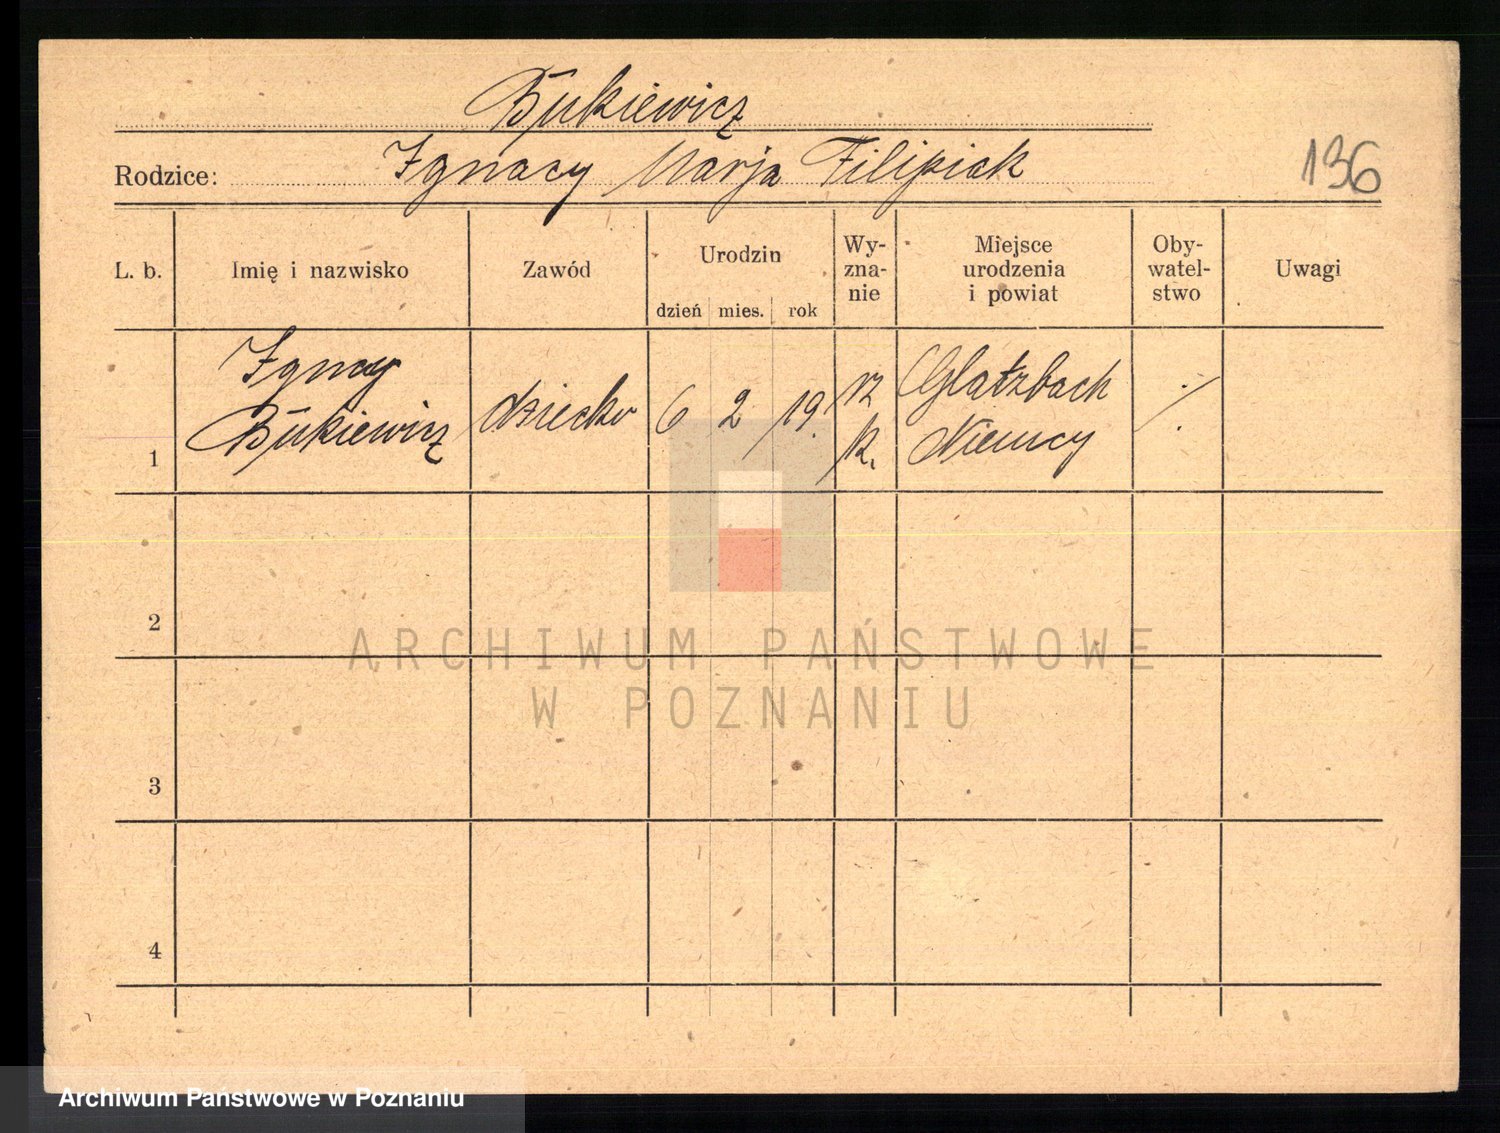 Bukiewicz
Rodzice: Ignacy Marja Filipiak
136
L. b. Imię i nazwisko Zawód Urodzin dzień mies. rok Wy-zna-nie Miejsce urodzenia i powiat Oby-watel-stwo Uwagi
Ignacy
Bukiewicz dziecko 6 2 19 rz Glatzbach
1 k. Niemcy
2
ARCHIWUM PAŃSTWOWE
W POZNANIU
3
4
Archiwum Państwowe w Poznaniu